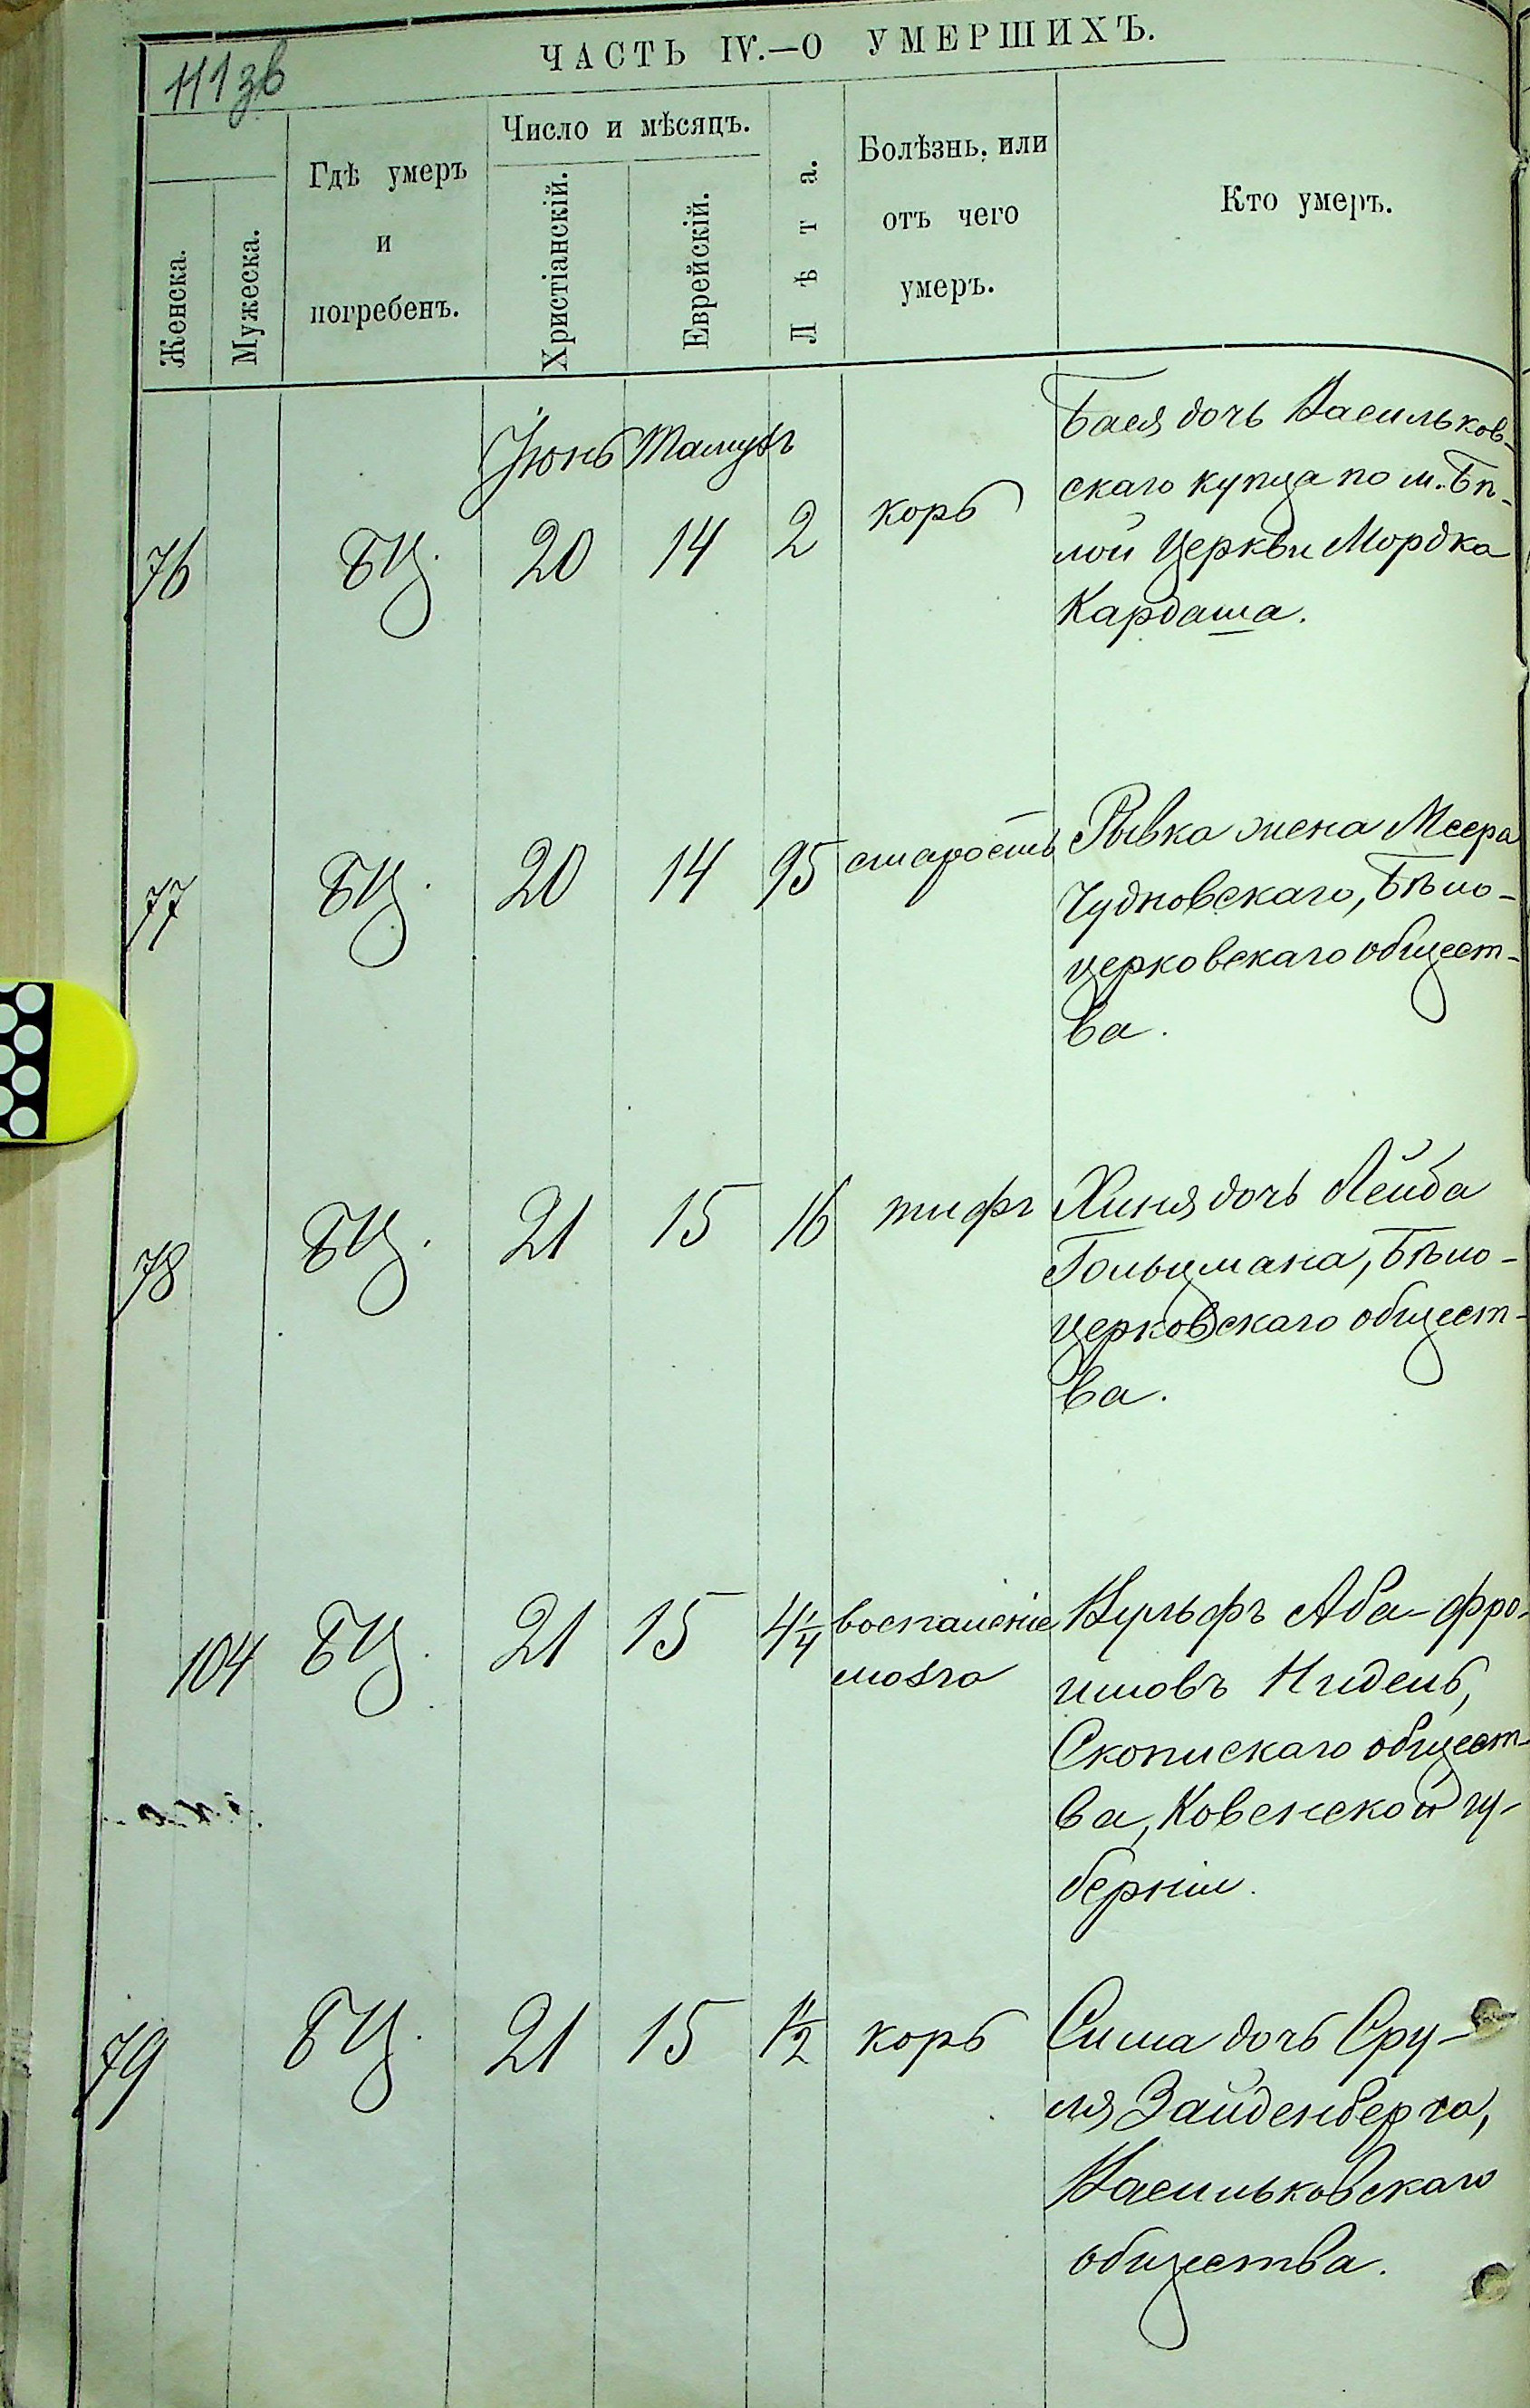 111 зв
ЧАСТЬ IV.—О УМЕРШИХЪ.
Женска.
Мужеска.
Гдѣ умеръ
и
погребенъ.
Число и мѣсяцъ.
Христіанскій.
Еврейскій.
Лѣта.
Болѣзнь, или
отъ чего
умеръ.
Кто умеръ.
Іюнь Тамузъ
76 БЦ. 20 14 2 корь
Бася дочь Васильков-
скаго купца по м. Бѣ-
лой Церкви Мордка
Кардаша.
77 БЦ. 20 14 95 старость
Рывка жена Меера
Чудновскаго, Бѣло-
церковскаго общест-
ва.
78 БЦ. 21 15 16 тифъ
Хиня дочь Лейба
Гольцмана, Бѣло-
церковскаго общест-
ва.
104 БЦ. 21 15 4¼ воспаленіе
мозга
Вульфъ Аба-Фро-
имовъ Нидель,
Скопискаго общест-
ва, Ковенской гу-
берніи.
79 БЦ. 21 15 1½ корь
Сима дочь Сру-
ля Зайденберга,
Васильковскаго
общества.